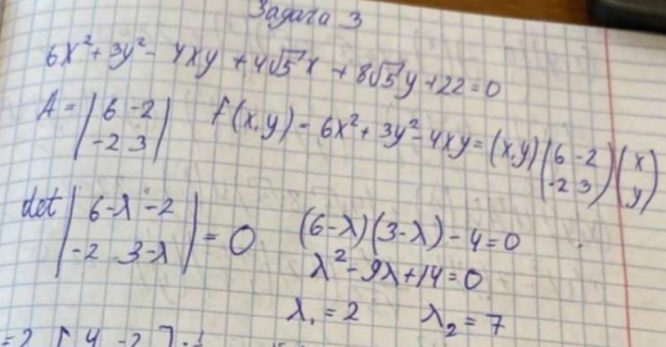 Задача 3
6x² + 3y² - 4xy + 4√5 x + 8√5 y + 22 = 0
A = |6 -2| f(x,y) = 6x² + 3y² - 4xy = (x,y) (6 -2) (x)
|-2 3| (-2 3) (y)
det |6-λ -2| = 0 (6-λ)(3-λ) - 4 = 0
|-2 3-λ| λ² - 9λ + 14 = 0
λ₁ = 2 λ₂ = 7
=2 [4 -2]